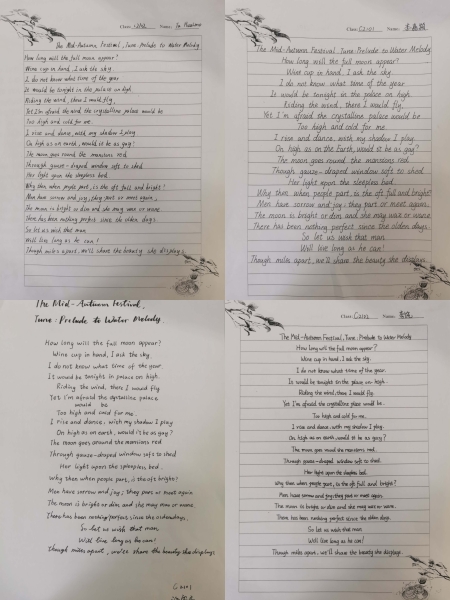 Class: Name:
The Mid-Autumn Festival, Tune: Prelude to Water Melody
How long will the full moon appear?
Wine cup in hand, I ask the sky.
I do not know what time of the year
It would be tonight in the palace on high.
Riding the wind, there I would fly,
Yet I'm afraid the crystalline palace would be
Too high and cold for me.
I rise and dance, with my shadow I play
On high as on earth, would it be as gay?
The moon goes round the mansions red
Through gauze-draped window soft to shed
Her light upon the sleepless bed
Why then when people part, is the oft full and bright?
Men have sorrow and joy, they part or meet again,
The moon is bright or dim and she may wax or wane
There has been nothing perfect since the olden days.
So let us wish that man
Will live long as he can!
Though miles apart, we'll share the beauty she displays.
Class: C2101 Name:
The Mid-Autumn Festival Tune: Prelude to Water Melody
How long will the full moon appear?
Wine cup in hand, I ask the sky.
I do not know what time of the year
It would be tonight in the palace on high.
Riding the wind, there I would fly,
Yet I'm afraid the crystalline palace would be
Too high and cold for me.
I rise and dance, with my shadow I play
On high as on the Earth, would it be as gay?
The moon goes round the mansions red
Through gauze-draped window soft to shed
Her light upon the sleepless bed.
Why then when people part, is the oft full and bright?
Men have sorrow and joy; they part or meet again.
The moon is bright or dim and she may wax or wane.
There has been nothing perfect since the olden days.
So let us wish that man
Will live long as he can!
Though miles apart, we'll share the beauty she displays.
The Mid-Autumn Festival,
Tune: Prelude to Water Melody.
How long will the full moon appear?
Wine cup in hand, I ask the sky
I do not know what time of the year
It would be tonight in palace on high.
Riding the wind, there I would fly
Yet I'm afraid the crystalline palace
would be
Too high and cold for me.
I rise and dance, with my shadow I play
On high as on earth, would it be as gay?
The moon goes around the mansions red
Through gauze-draped window soft to shed
Her light upon the sleepless bed.
Why then when people part, is the oft bright?
Men have sorrow and joy; they part or meet again
The moon is bright or dim and she may wax or wane
There has been nothing perfect since the olden days.
So let us wish that man
Will live long as he can!
Though miles apart, we'll share the beauty she displays
C2101
Class: C2101 Name:
The Mid-Autumn Festival, Tune: Prelude to Water Melody
How long will the full moon appear?
Wine cup in hand, I ask the sky.
I do not know what time of the year
It would be tonight in the palace on high.
Riding the wind, there I would fly,
Yet I'm afraid the crystalline place would be
Too high and cold for me.
I rise and dance, with my shadow I play.
On high as on earth, would it be as gay?
The moon goes round the mansions red
Through gauze-draped window soft to shed.
Her light upon the sleepless bed.
Why then when people part, is the oft full and bright?
Men have sorrow and joy; they part or meet again.
The moon is bright or dim and she may wax or wane.
There has been nothing perfect since the olden days.
So let us wish that man
Will live long as he can!
Though miles apart, we'll share the beauty she displays.